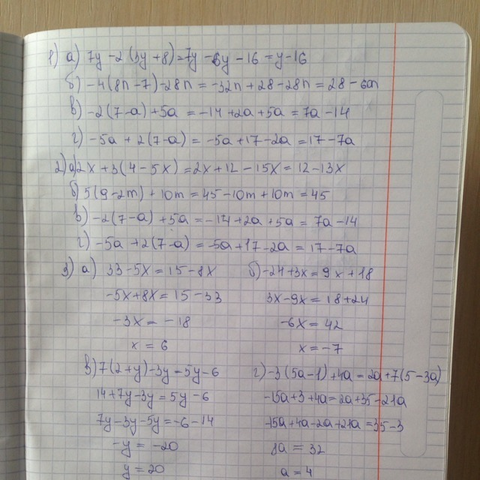 1) а) 7y - 2(3y + 8) = 7y - 6y - 16 = y - 16
б) -4(8n - 7) - 28n = -32n + 28 - 28n = 28 - 60n
в) -2(7 - a) + 5a = -14 + 2a + 5a = 7a - 14
г) -5a + 2(7 - a) = -5a + 17 - 2a = 17 - 7a
2) а) 2x + 3(4 - 5x) = 2x + 12 - 15x = 12 - 13x
б) 5(9 - 2m) + 10m = 45 - 10m + 10m = 45
в) -2(7 - a) + 5a = -14 + 2a + 5a = 7a - 14
г) -5a + 2(7 - a) = -5a + 17 - 2a = 17 - 7a
3) а) 33 - 5x = 15 - 8x
-5x + 8x = 15 - 33
-3x = -18
x = 6
б) -24 + 3x = 9x + 18
3x - 9x = 18 + 24
-6x = 42
x = -7
в) 7(2 + y) - 3y = 5y - 6
14 + 7y - 3y = 5y - 6
7y - 3y - 5y = -6 - 14
-y = -20
y = 20
г) -3(5a - 1) + 4a = 2a + 7(5 - 3a)
-15a + 3 + 4a = 2a + 35 - 21a
-15a + 4a - 2a + 21a = 35 - 3
8a = 32
a = 4